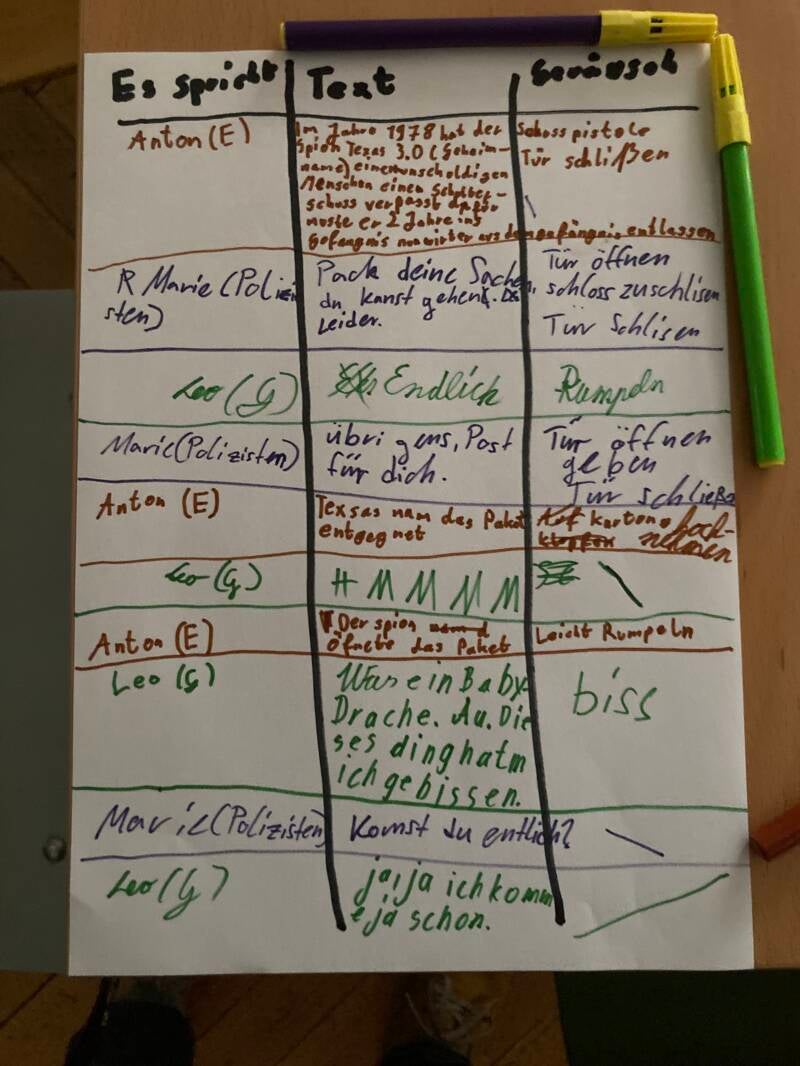 Es spricht
Text
Geräusch
Anton (E)
Im Jahre 1978 hat der
Spion Texas 3.0 (Geheim-
name) einem unscholdigen
Menschen einen Schulter-
schuss verpasst dafür
muste er 2 Jahre ins
Gefängnis nun wirter aus dem gefängnis entlassen
Schuss pistole
Tür schlißen
R Marie (Polizi
sten)
Pack deine Sachen,
du kanst gehen.
Leider.
Tür öffnen
schloss zuschlisen
Tür Schlisen
Leo (G)
Endlich
Rumpeln
Marie (Polizisten)
übrigens, Post
für dich.
Tür öffnen
geben
Tür schließe
Anton (E)
Texsas nam das Paket
entgegnet
Auf karton
klopfen
hoch-
nehmen
Leo (G)
HMMMM
Anton (E)
Der spion
öfnete das Paket
Leicht Rumpeln
Leo (G)
Was ein Baby
Drache. Au. Die
ses ding hat m
ich gebissen.
biss
Marie (Polizisten)
Komst du entlich?
Leo (G)
ja, ja ich komm
e ja schon.